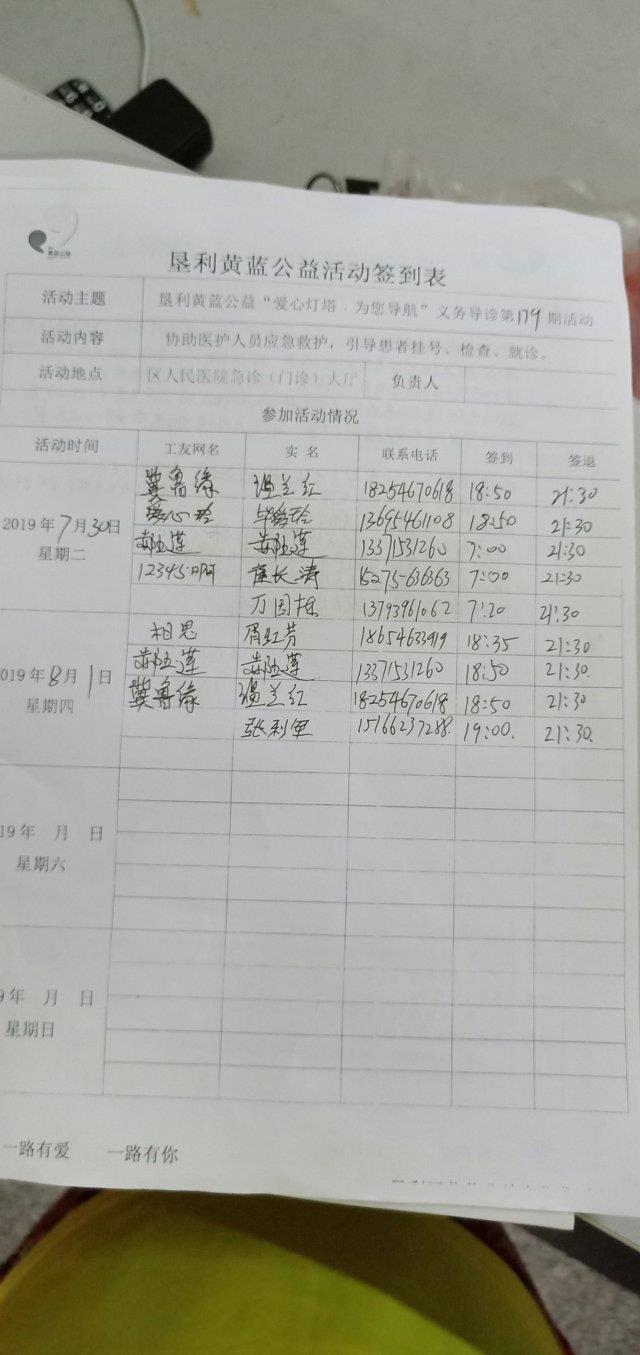 垦利黄蓝公益活动签到表
活动主题 垦利黄蓝公益“爱心灯塔．为您导航”义务导诊第179期活动
活动内容 协助医护人员应急救护，引导患者挂号、检查、就诊。
活动地点 区人民医院急诊（门诊）大厅 负责人
参加活动情况
活动时间 工友网名 实 名 联系电话 签到 签退
冀鲁缘 温兰红 18254670618 18:50 21:30
爱心玲 13695461108 18:50 21:30
2019年7月30日
星期二
郝玉莲 郝玉莲 13371531260 7:00 21:30
12345 崔长涛 15275636363 7:00 21:30
万国栋 13793961062 7:20 21:30
相思 周红芳 18654633919 18:35 21:30
019年8月1日
星期四
郝玉莲 郝玉莲 13371531260 18:50 21:30
冀鲁缘 温兰红 18254670618 18:50 21:30
张利军 15166237288 19:00. 21:30.
19年 月 日
星期六
9年 月 日
星期日
一路有爱 一路有你